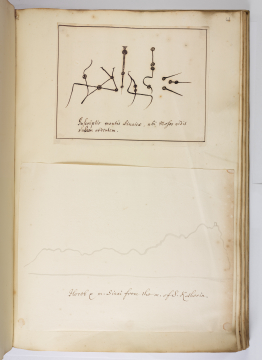 Inscriptio montis Sinaici, ubi Moses vidit
rubum ardentem.
Horeb & m. Sinai from the m. of S. Katharin.